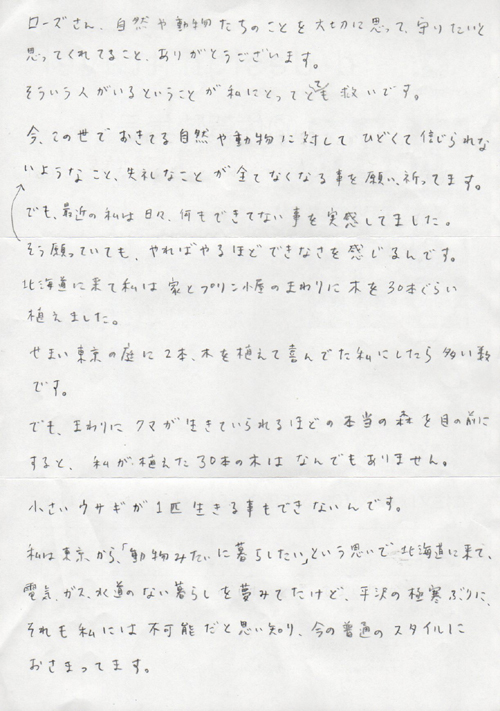 ローズさん、自然や動物たちのことを大切に思って、守りたいと
思ってくれてること、ありがとうございます。
そういう人がいるということが私にとってとても救いです。
今、この世でおきてる自然や動物に対してひどくて信じられな
いようなこと、失礼なことが全てなくなる事を願い、祈ってます。
でも、最近の私は日々、何もできてない事を実感してました。
そう願っていても、やればやるほどできなさを感じるんです。
北海道に来て私は家とプリン小屋のまわりに木を30本ぐらい
植えました。
せまい東京の庭に2本、木を植えて喜んでた私にしたら多い数
です。
でも、まわりに、クマが生きていられるほどの本当の森を目の前に
すると、私が植えた30本の木はなんでもありません。
小さいウサギが1匹生きる事もできないんです。
私は東京から、「動物みたいに暮らしたい」という思いで北海道に来て、
電気、ガス、水道のない暮らしを夢みてたけど、平沢の極寒ぶりに、
それも私には不可能だと思い知り、今の普通のスタイルに
おさまってます。